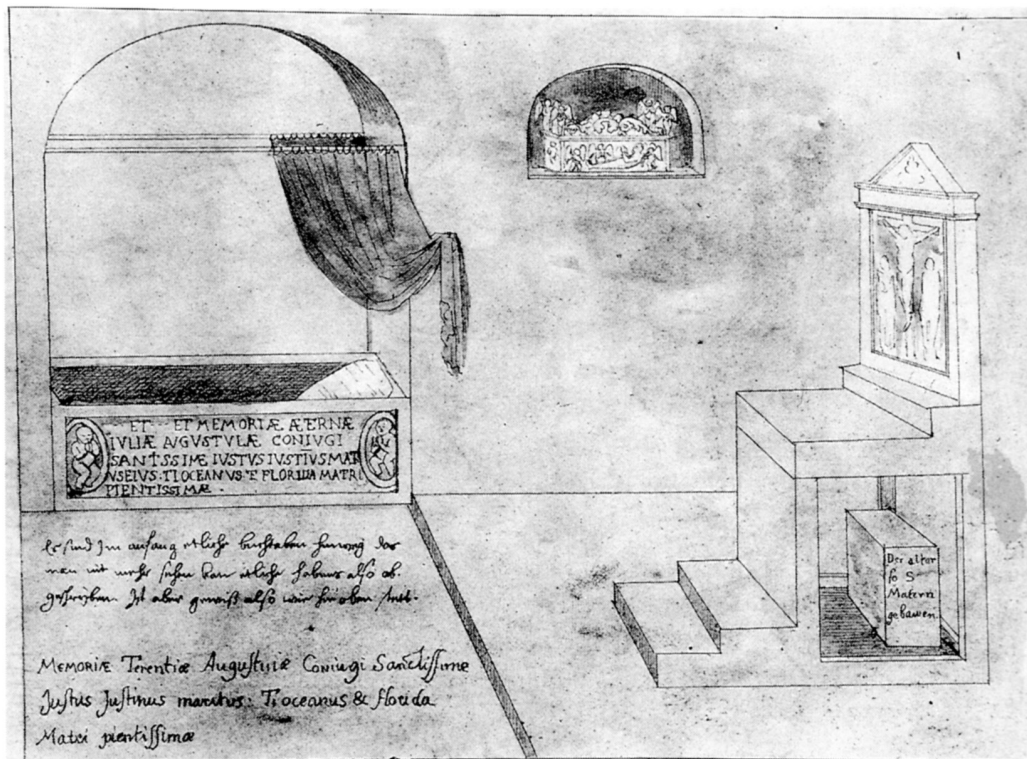 ET · · ET MEMORIÆ ÆTERNÆ
IVLIÆ AVGVSTVLÆ CONIVGI
SANTSSIMÆ IVSTVS IVSTIVS MAT
VSEIVS · TI OCEANVS · E FLORIDA MATRI
PIENTISSIMÆ ·
Es sind Im anfang etliche buchstaben hinweg das
man nit mehr sehen kan etliche habens also ab
geschryben. Ist aber gewiß also wie hie oben
Memoriæ Terentiæ Augustiniæ Coniugi Sanctissimæ
Justus Justinus maritus: Ti oceanus & florida
Matri pientissimæ
Der altar
so S
Matern
gebawen